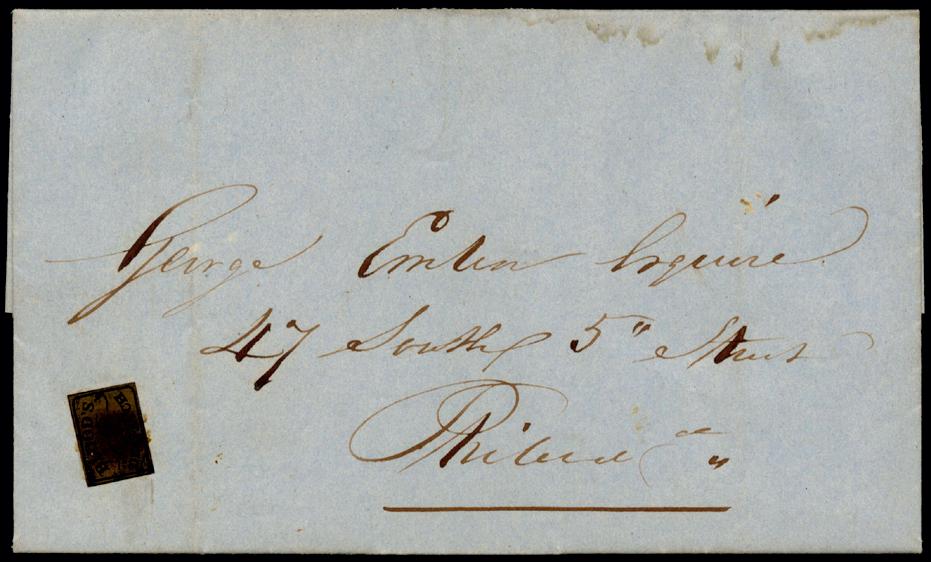 George Emlen Esquire
47 South 5" Street
Philada "